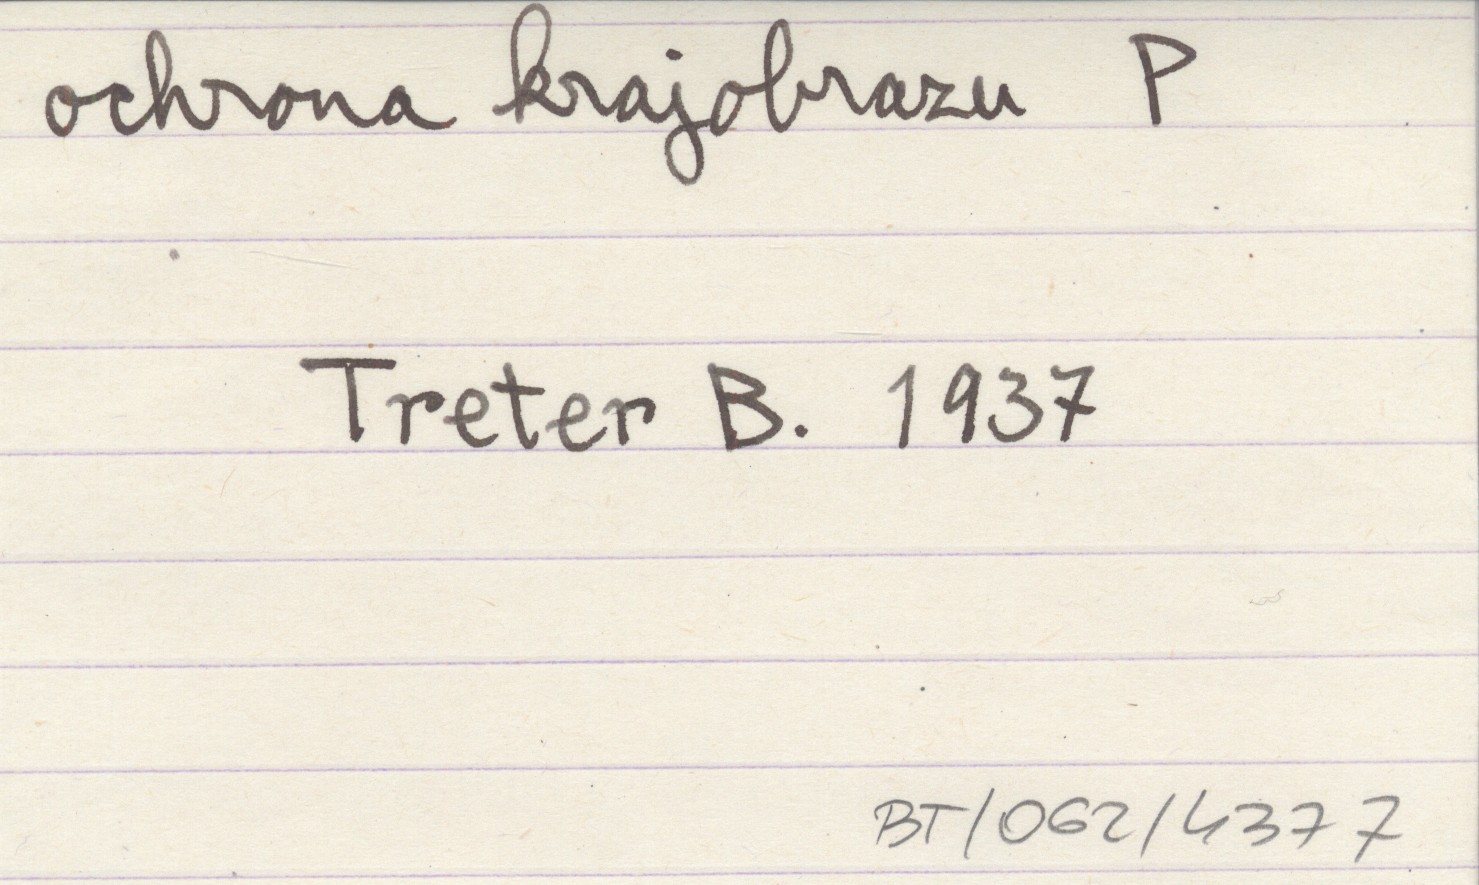 ochrona krajobrazu P
Treter B. 1937
BT/062/4377